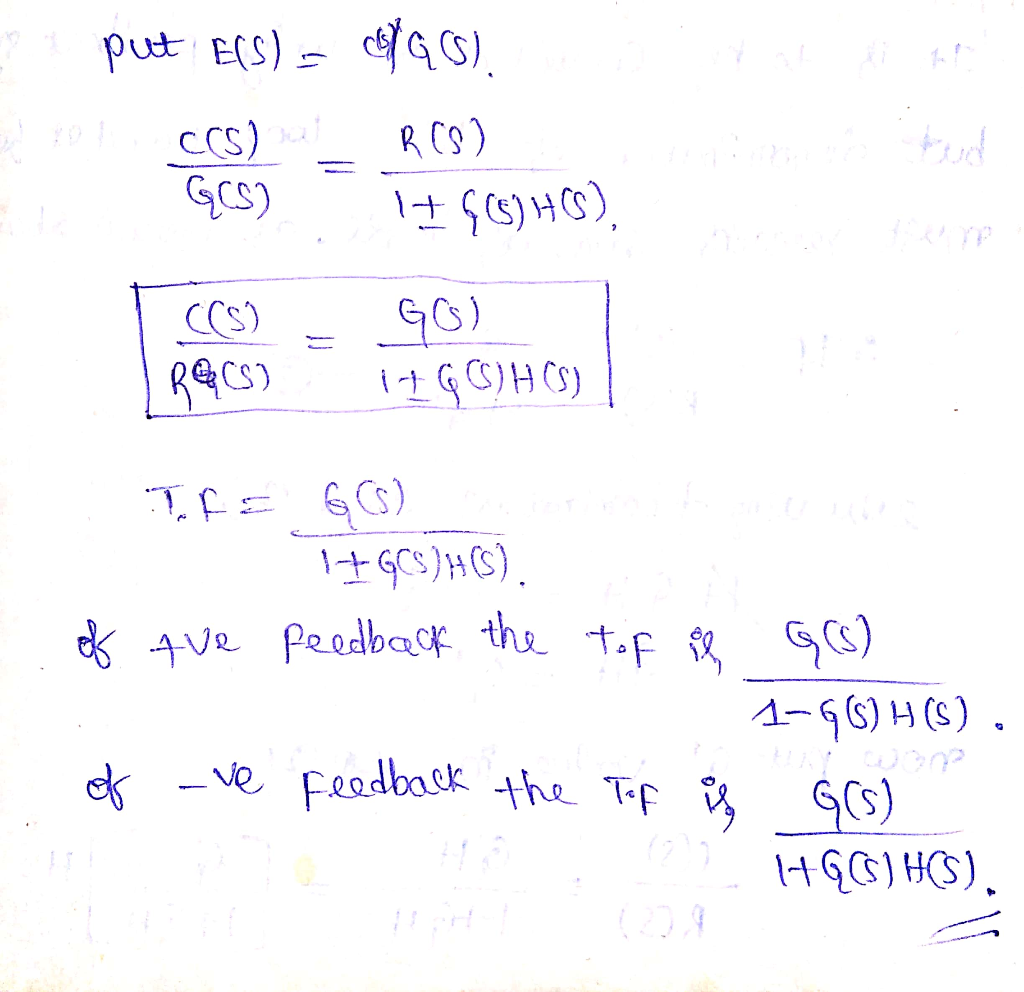 put E(S) = C(S)/G(S).
C(S)/G(S) = R(S)/1 ± G(S)H(S).
C(S)/R(S) = G(S)/1 ± G(S)H(S)
T.F = G(S)/1 ± G(S)H(S).
of +ve feedback the T.F is G(S)/1-G(S)H(S).
of -ve Feedback the T.F is G(S)/1+G(S)H(S).